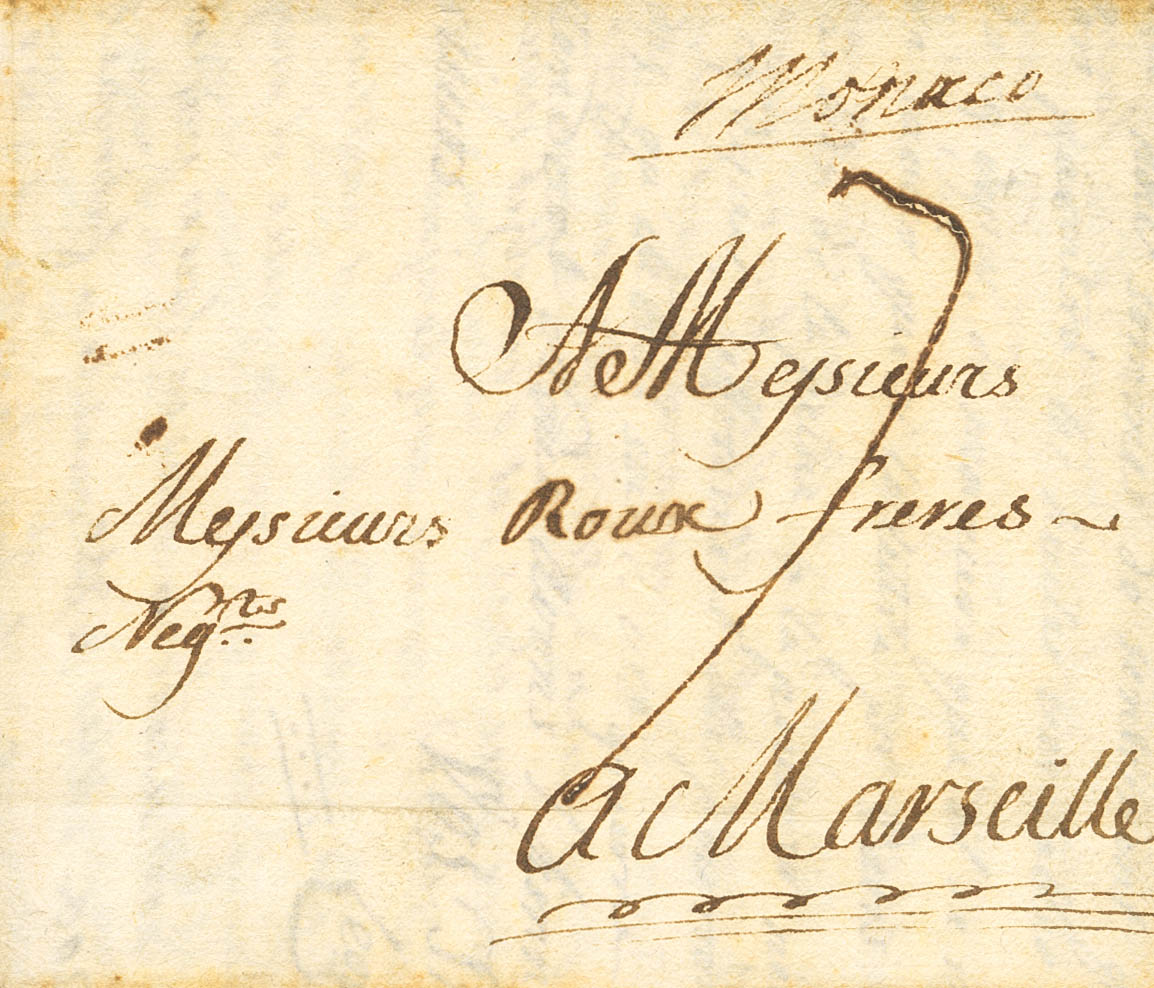 Monaco
7
A Messieurs
Messieurs Roux freres
Negts
a Marseille